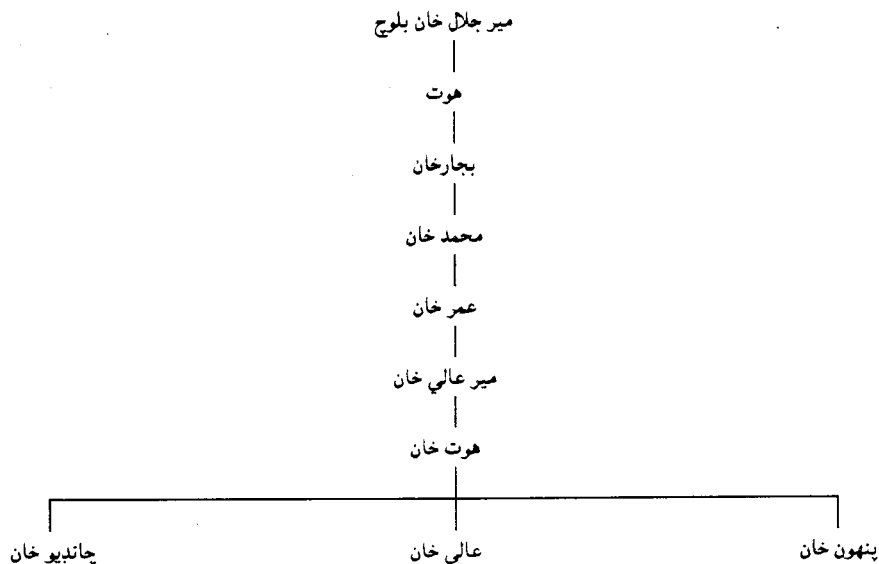 مير جلال خان بلوچ
هوت
بجارخان
محمد خان
عمر خان
مير عالي خان
هوت خان
پنهون خان
عالي خان
چانڊيو خان